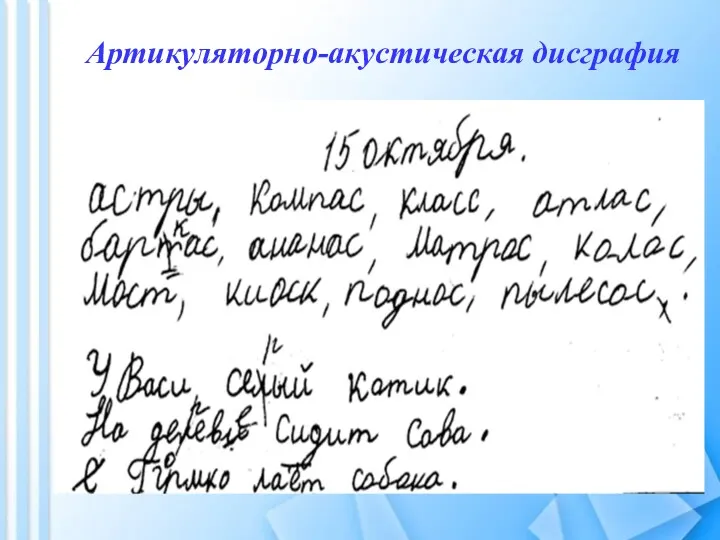 Артикуляторно-акустическая дисграфия
15 октября.
астры, компас, класс, атлас,
баркас, ананас, матрос, колас,
Мост, киоск, поднос, пылесос.
У Васи серый котик.
На сидит сова.
лает собака.